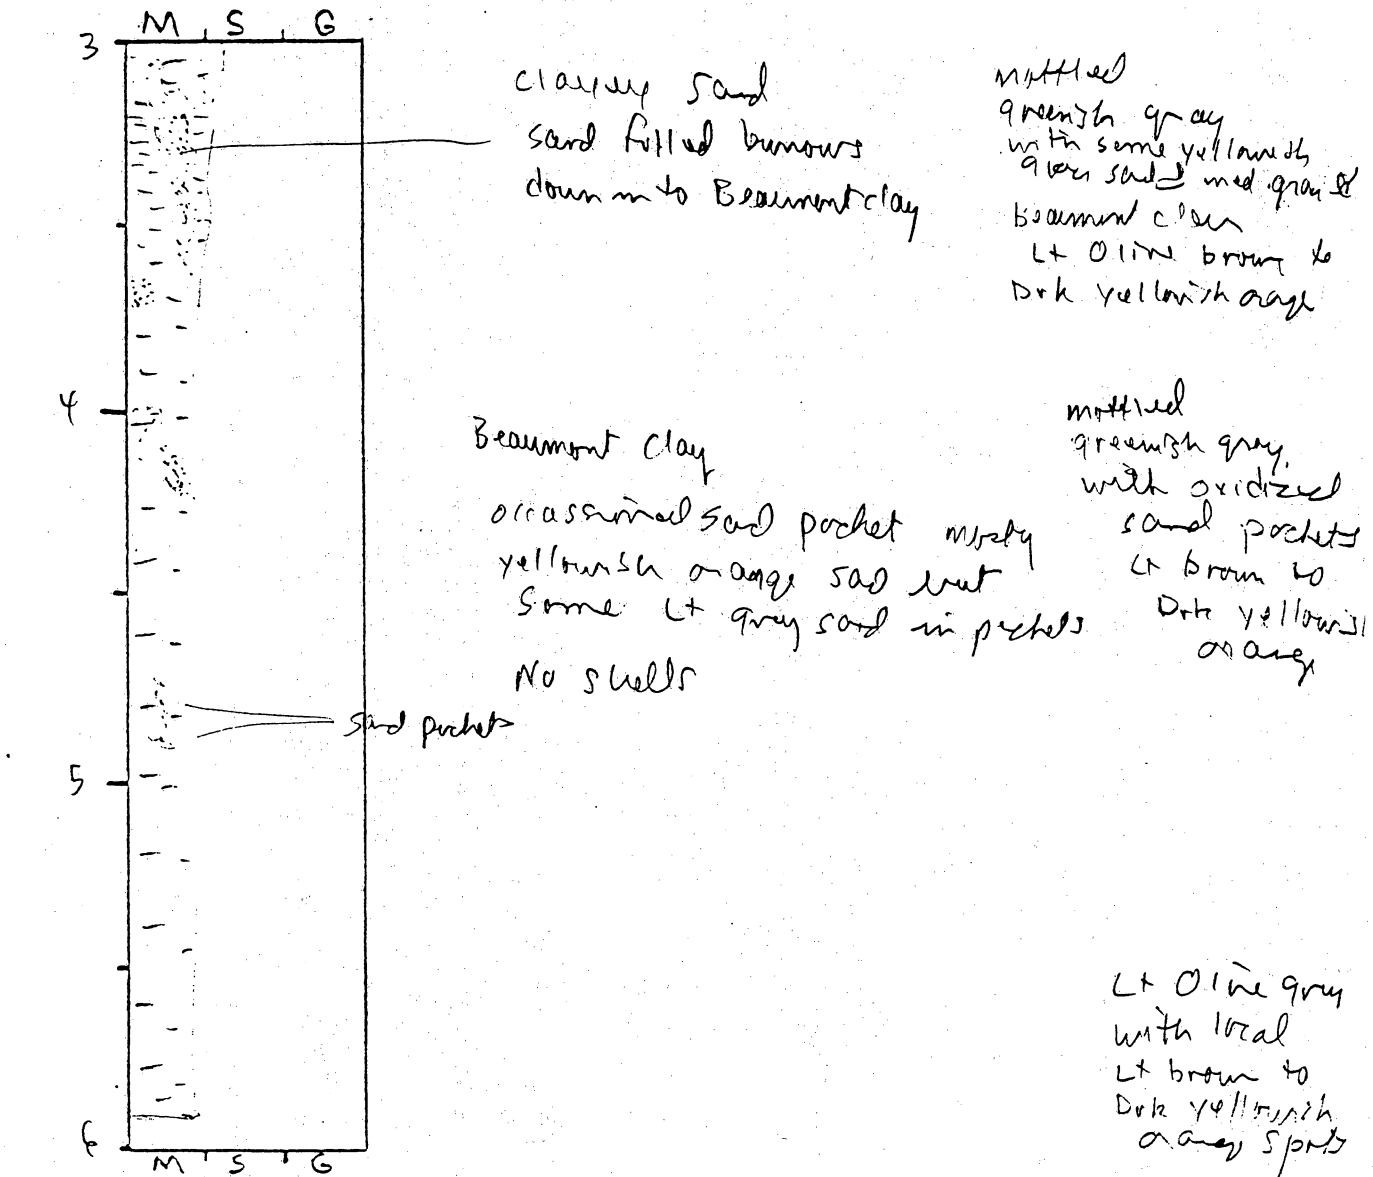 M S G
3
clayey sand
sand filled burrows
down into Beaumont clay
mottled
greenish gray
with some yellowish
sand med gray
Beaumont clay
Lt Olive brown to
Drk yellowish orange
4
Beaumont Clay
occassional sand pocket mostly
yellowish orange sand but
Some Lt gray sand in pockets
No shells
mottled
greenish gray
with oxidized
sand pockets
Lt brown to
Drk yellowish
orange
sand pockets
5
Lt Olive gray
with local
Lt brown to
Drk yellowish
orange spots
6
M S G